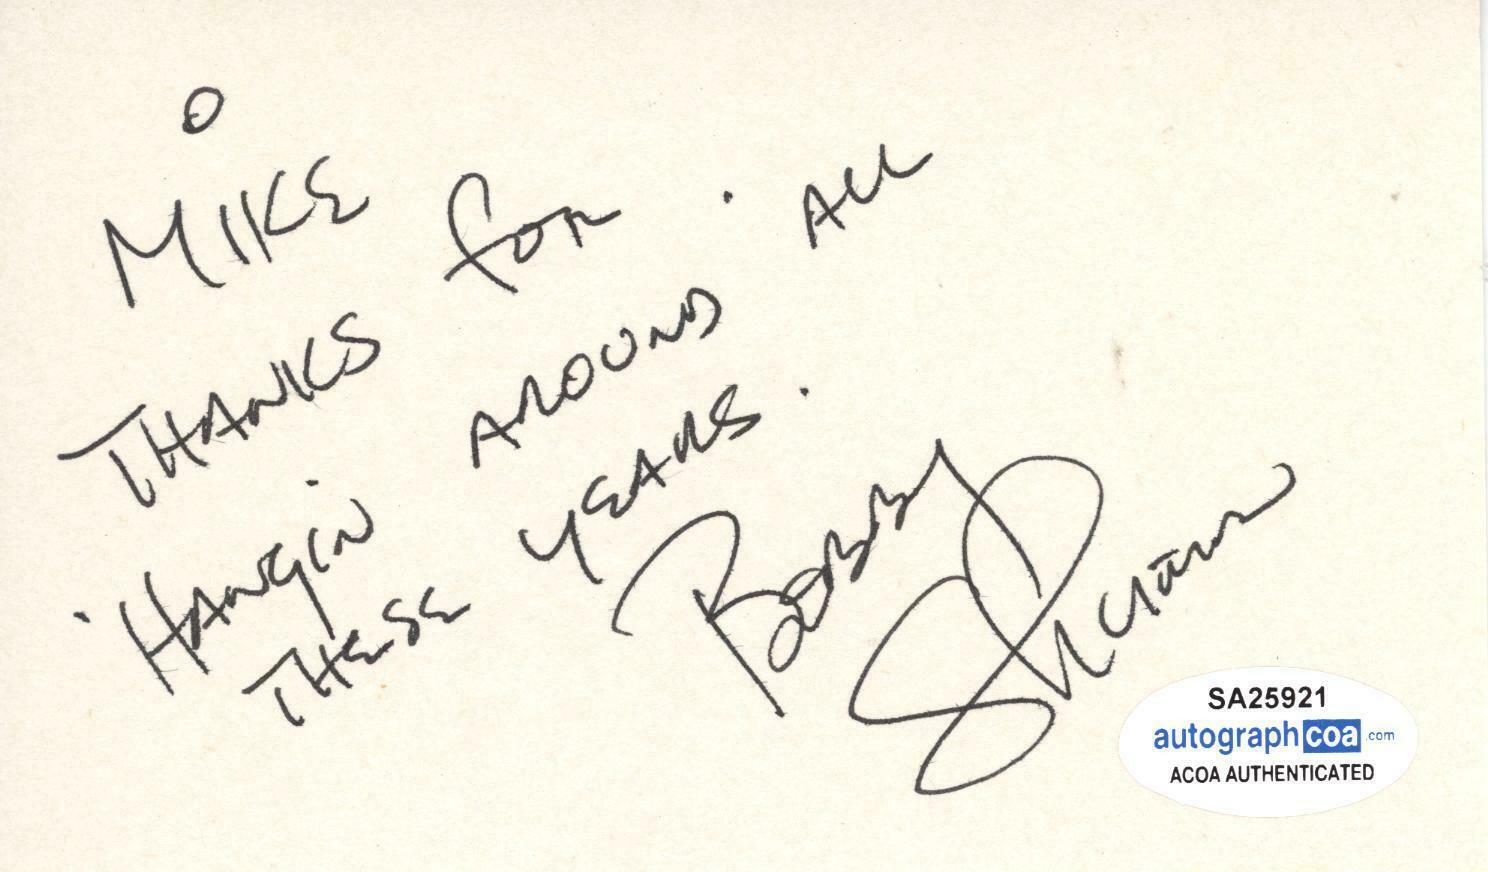 MIKE
THANKS FOR
'HANGIN AROUND ' ALL
THESE YEARS.
BOBBY SHERMAN
SA25921
autographcoa.com
ACOA AUTHENTICATED